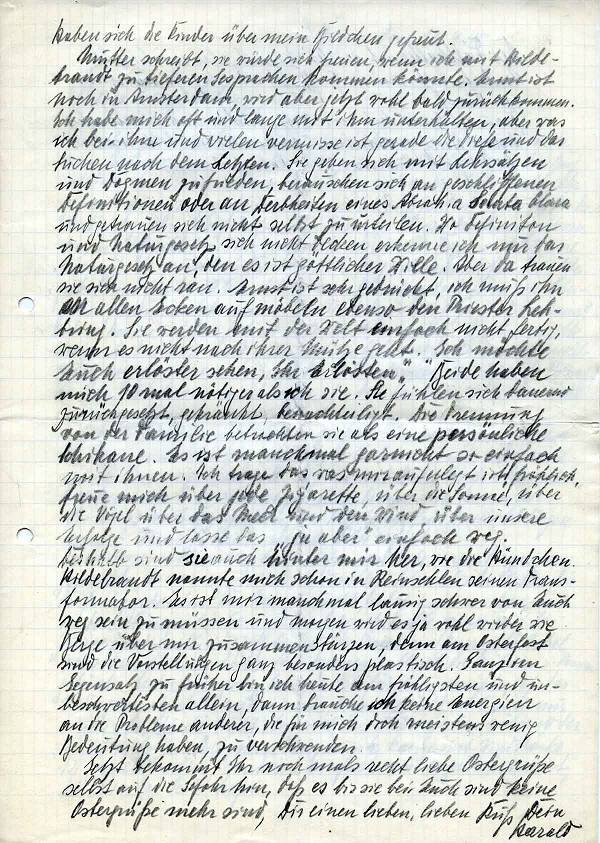 Haben sich die Kinder über mein Liedchen gefreut.
Mutter schreibt, sie würde sich freuen, wenn ich mit Hilde-
brandt zu tieferen Gesprächen kommen könnte. Ernst ist
noch in Amsterdam, wird aber jetzt wohl bald zurückkommen.
Ich habe mich oft und lange mit ihm unterhalten, aber was
ich bei ihm und vielen vermisse ist gerade die Tiefe und das
Suchen nach dem Letzten. Sie geben sich mit Lehrsätzen
und Dogmen zufrieden, berauschen sich an geschliffenen
Definitionen oder an Derbheiten eines Abrah. a Santa Clara
und getrauen sich nicht selbst zu urteilen. Wo Definition
und Naturgesetz sich nicht decken erkenne ich nur das
Naturgesetz an, den es ist göttlicher Wille. Aber da trauen
sie sich nicht ran. Ernst ist sehr geknickt, ich muß ihn
an allen Ecken aufmöbeln ebenso den Priester Leh-
bring. Sie werden mit der Welt einfach nicht fertig,
wenn es nicht nach ihrer Mütze geht. "Ich möchte
Euch erlöster sehen, Ihr Erlösten". Beide haben
mich 10 mal nötiger als ich sie. Sie fühlen sich dauernd
zurückgesetzt, gekränkt, benachteiligt. Die Trennung
von der Familie betrachten sie als eine persönliche
Schikane. Es ist manchmal garnicht so einfach
mit ihnen. Ich trage das was mir auferlegt ist fröhlich,
freue mich über jede Zigarette, über die Sonne, über
die Vögel über das Meer und den Wind über unsere
Erfolge und lasse das "ja aber" einfach weg.
Deshalb sind sie auch hinter mir her, wie die Hündchen.
Hildebrandt nannte mich schon in Reinsehlen seinen Trans-
formator. Es ist mir manchmal lausig schwer von Euch
weg sein zu müssen und morgen wird es ja wohl wieder wie
Berge über mir zusammenstürzen, denn am Osterfest
sind die Vorstellungen ganz besonders plastisch. Ganz im
Gegensatz zu früher bin ich heute am fröhligsten und un-
beschwertesten allein, dann brauche ich keine Energien
an die Probleme anderer, die für mich doch meistens wenig
Bedeutung haben, zu verschwenden.
Jetzt bekommt Ihr noch mals recht liebe Ostergrüße
selbst auf die Gefahr hin, daß es bis sie bei Euch sind keine
Ostergrüße mehr sind, Dir einen lieben, lieben Kuß Dein
Harald